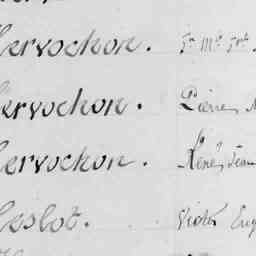 ervochon.
ervochon. Pierre
ervochon. René Jean
eslot. Victor Eug